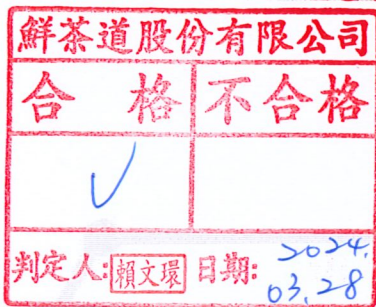 鮮茶道股份有限公司
合格 不合格
✓
判定人:賴文環 日期:2024.
03.28